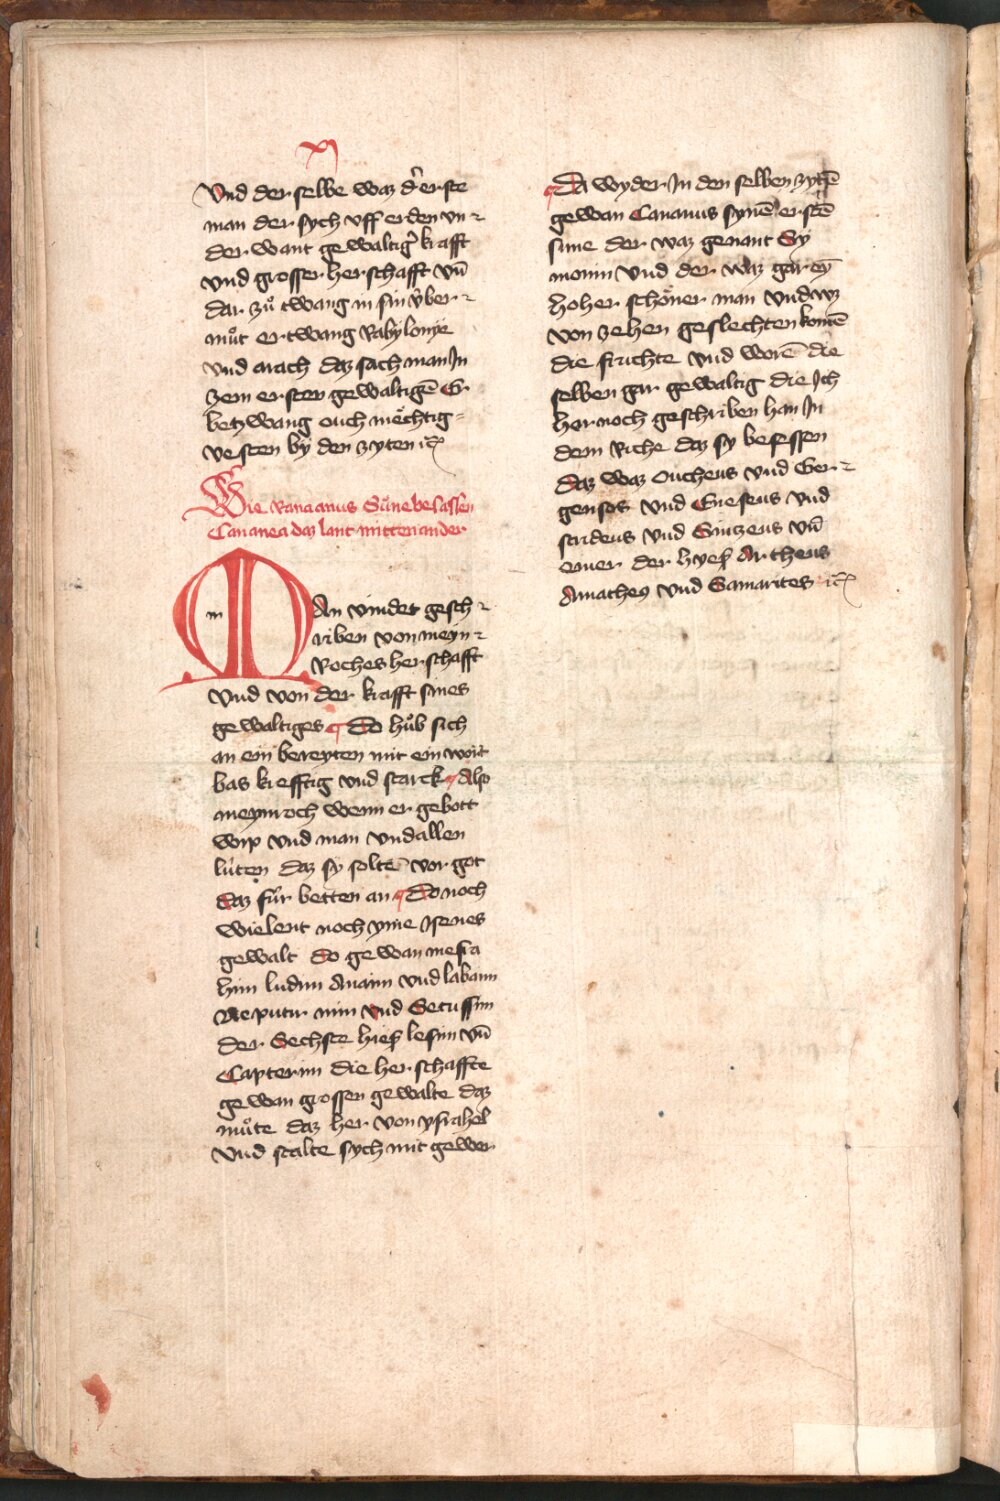 xj
Vnd der selbe waz dˀ erste
man der sych vff erden vn⸗
der want gewaltigˀ krafft
vnd grosser herschafft vn̄
dar zuͦ twang in sin v̇ber⸗
muͦt er twang Babylonye
vnd arach daz sach man In
zem ersten gewaltigē Er
betzwang ouch mechtig⸗
vesten by den zyten ⁊c̄
Wie Kanaanus Süne besassen
Cananea daz lant mitten ander
m
MAn vindet gesch⸗
riben von meyn⸗
Roches herschafft
Vnd von der krafft sines
gewaltiges ¶ Do huͦb sich
an ein bereyten mit ein wort
bas krefftig vnd starck ¶ Also
meynroch wenn er gebott
wip vnd man vnd allen
lüten daz sy soltē vor got
daz für betten an ¶ Do noch
wielent noch yme Jsenes
gewalt do gewan mesra
him ludim Anaim vnd labaim
Neputu nim vnd Getussim
der Sechste hieß lesim vn̄
Capterim die herschaffte
gewan grossen gewalte daz
muͦte daz her von ysrahel
vnd stalte sych mit gewer
¶ Da wyder In den selben zytē
gewan Cananus synē erstē
sune der waz genant Sy
monin vnd der waz gar eȳ
hoher schöner man vnd wz
von zehen geslechten komē
die fruchte vnd worē die
selben gar gewaltig die Ich
her noch geschriben han In
dem Riche daz sy besessen
Daz waz Oucheus vnd Ger⸗
gensos vnd Eueseus vnd
aradeus vnd Sinizeus vn̄
einer der hyeß Artheus
Amatheus vnd Samarites ⁊c̄